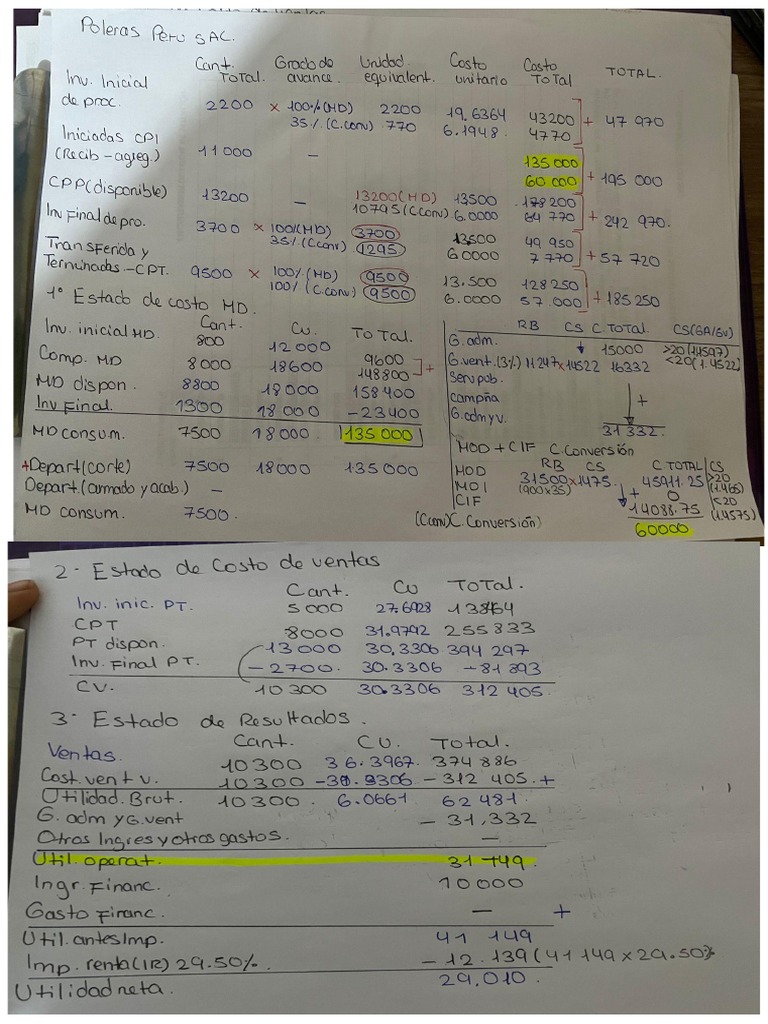 Poleras Perú SAC.
Cant. Total. Grado de avance. Unidad. equivalent. Costo unitario Costo Total TOTAL.
Inv. Inicial de proc. 2200 x 100%(MD) 2200 19.6364 43200 + 47 970
35%(C.conv) 770 6.1948. 4770
Iniciadas CPI (Recib-agreg.) 11000 — 135000 + 195 000
60 000
CPP(disponible) 13200 — 13200(MD) 13500 178200 + 242 970.
10795(Cconv) 6.0000 64 770
Inv Final de pro. 3700 x 100%(MD) 3700 13500 49 950 + 57 720
35%(Cconv) 1295 60000 7 770
Transferida y Terminadas-CPT. 9500 x 100%(MD) 9500 13.500 128 250 + 185 250
100%(C.conv) 9500 6.0000 57.000
1° Estado de costo MD.
Cant. Cu. Total.
Inv. inicial MD. 800 12000 9600 +
Comp. MD 8000 18600 148800
MD dispon. 8800 18000 158400
Inv Final. 1300 18000 -23400
MD consum. 7500 18000. 135000
+Depart(corte) 7500 18000 135000
Depart.(armado y acab.) —
MD consum. 7500.
RB CS C.Total. CS(GA/GV)
G.adm. 15000 >20(1.4597)
G.vent.(3%) 11247x14522 16332 <20(1.4522)
Serv pub.
campña +
G.adm y v. 31332.
MOD + CIF C.Conversión
RB CS C.Total CS
MOD 31500x1475. 45911.25 >20 (1.465)
MOI (900x35) + 0 <20
CIF 14088.75 (1.4575)
(Cconv)C.Conversión) 60000
2- Estado de costo de ventas
Cant. CU Total.
Inv. inic. PT. 5000 27.6928 138464
CPT 8000 31.9792 255833
PT dispon. 13000 30.3306 394 297
Inv. Final PT. -2700. 30.3306 -81893
CV. 10300 30.3306 312405.
3- Estado de Resultados.
Cant. CU. Total.
Ventas. 10300 36.3967. 374 886
Cost. vent v. 10300 -30.3306 -312 405.+
Utilidad.Brut. 10300. 6.0661 62481.
G. adm y G.vent -31,332
Otros Ingres y otros gastos. —
Util. operat. 31 149.
Ingr. Financ. 10000
Gasto Financ. — +
Util. antes Imp. 41 149
Imp. renta(IR) 29.50%. -12.139(41149x29.50%
Utilidad neta. 29,010.